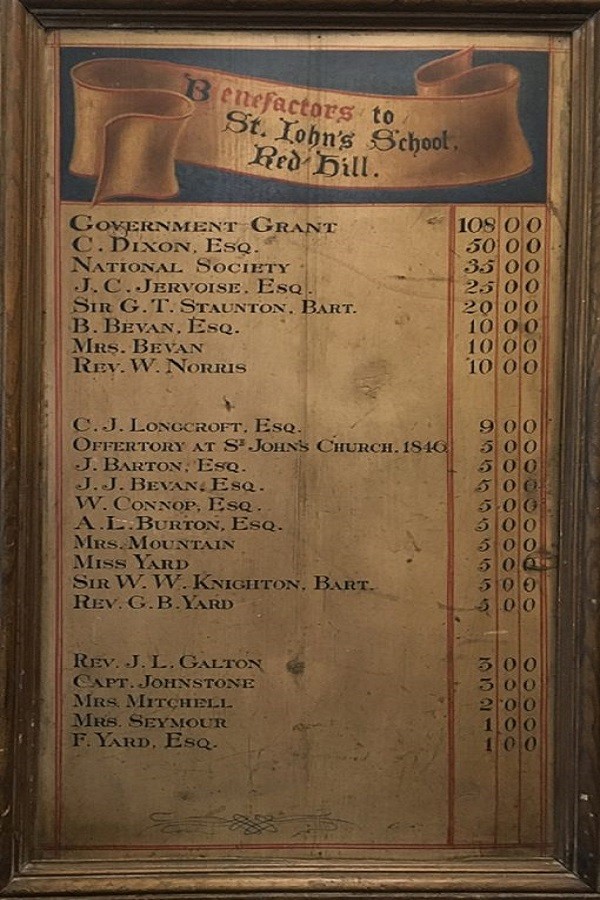 Benefactors to
St. John's School,
Red Hill.
GOVERNMENT GRANT 108 0 0
C. DIXON, ESQ. 50 0 0
NATIONAL SOCIETY 35 0 0
J. C. JERVOISE, ESQ. 25 0 0
SIR G. T. STAUNTON, BART. 20 0 0
B. BEVAN, ESQ. 10 0 0
MRS. BEVAN 10 0 0
REV. W. NORRIS 10 0 0
C. J. LONGCROFT, ESQ. 9 0 0
OFFERTORY AT ST JOHN'S CHURCH. 1846 5 0 0
J. BARTON, ESQ. 5 0 0
J. J. BEVAN, ESQ. 5 0 0
W. CONNOP, ESQ. 5 0 0
A. L. BURTON, ESQ. 5 0 0
MRS. MOUNTAIN 5 0 0
MISS YARD 5 0 0
SIR W. W. KNIGHTON, BART. 5 0 0
REV. G. B. YARD 5 0 0
REV. J. L. GALTON 3 0 0
CAPT. JOHNSTONE 3 0 0
MRS. MITCHELL 2 0 0
MRS. SEYMOUR 1 0 0
F. YARD, ESQ. 1 0 0